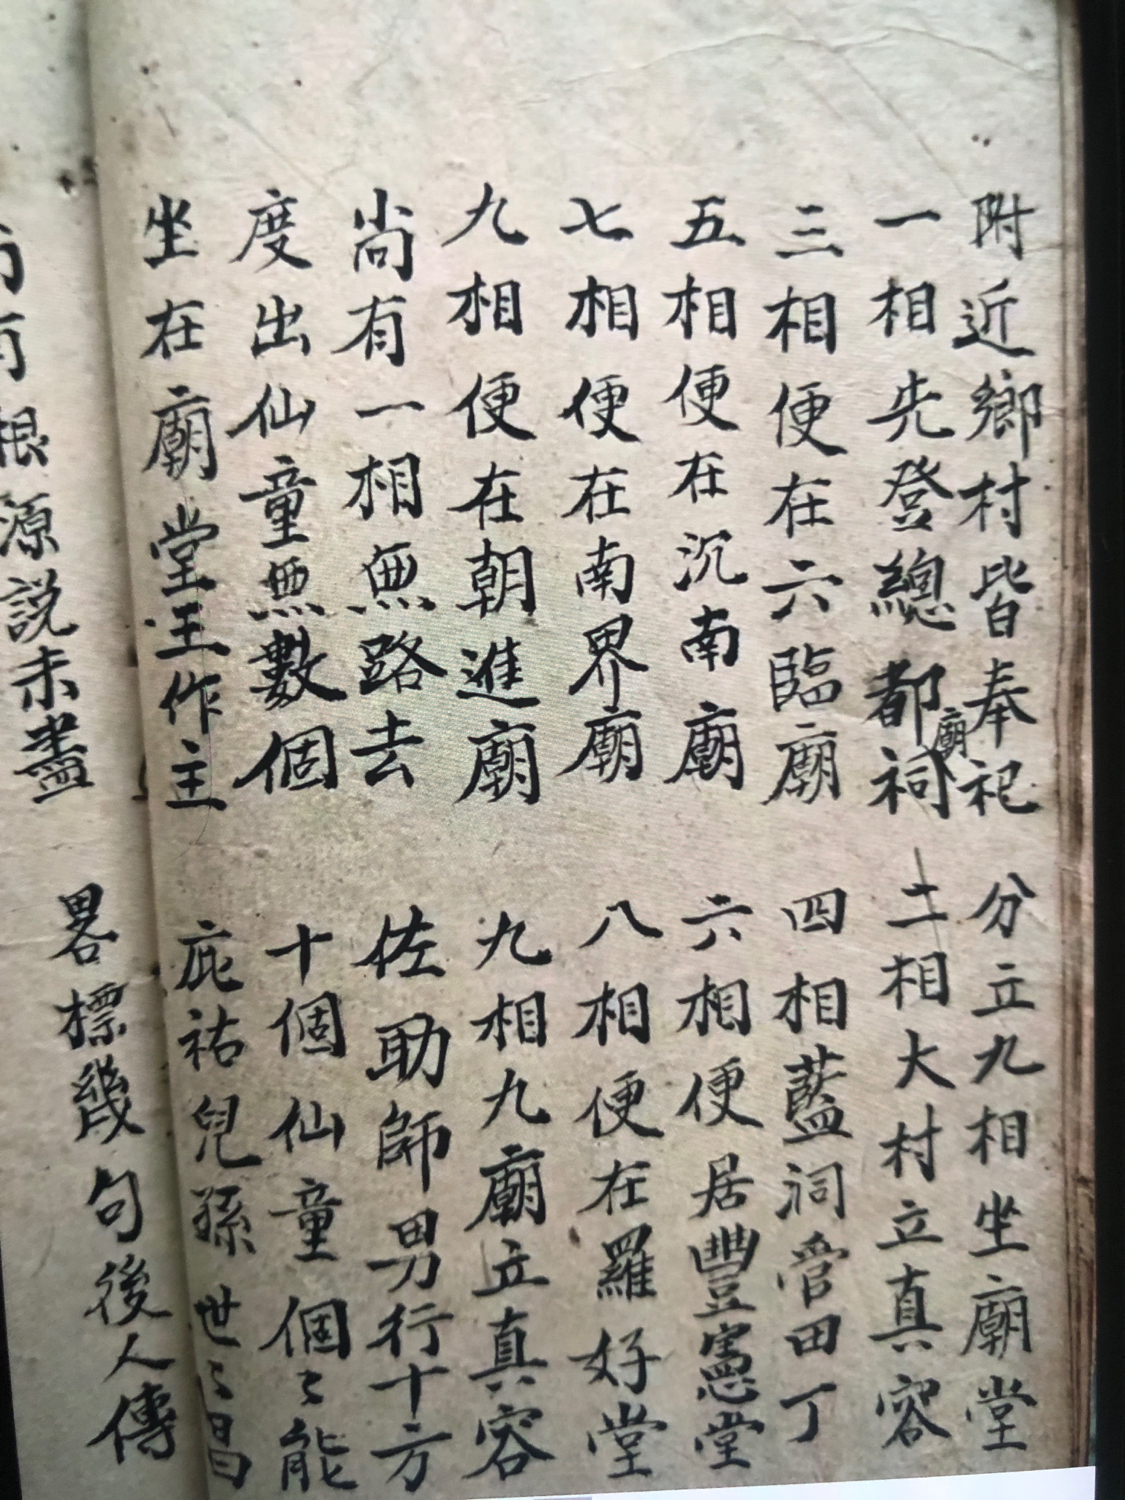 附近鄉村皆奉祀 分立九相坐廟堂
一相先登總都祠 二相大村立真容
廟
三相便在六臨廟 四相藍洞管田丁
五相便在沉南廟 六相便居豐憲堂
七相便在南界廟 八相便在羅好堂
九相便在朝進廟 九相九廟立真容
尚有一相無路去 佐助師男行十方
度出仙童無數個 十個仙童個〻能
坐在廟堂王作主 庇祐兒孫世〻昌
有根源説未盡 畧標幾句後人傳